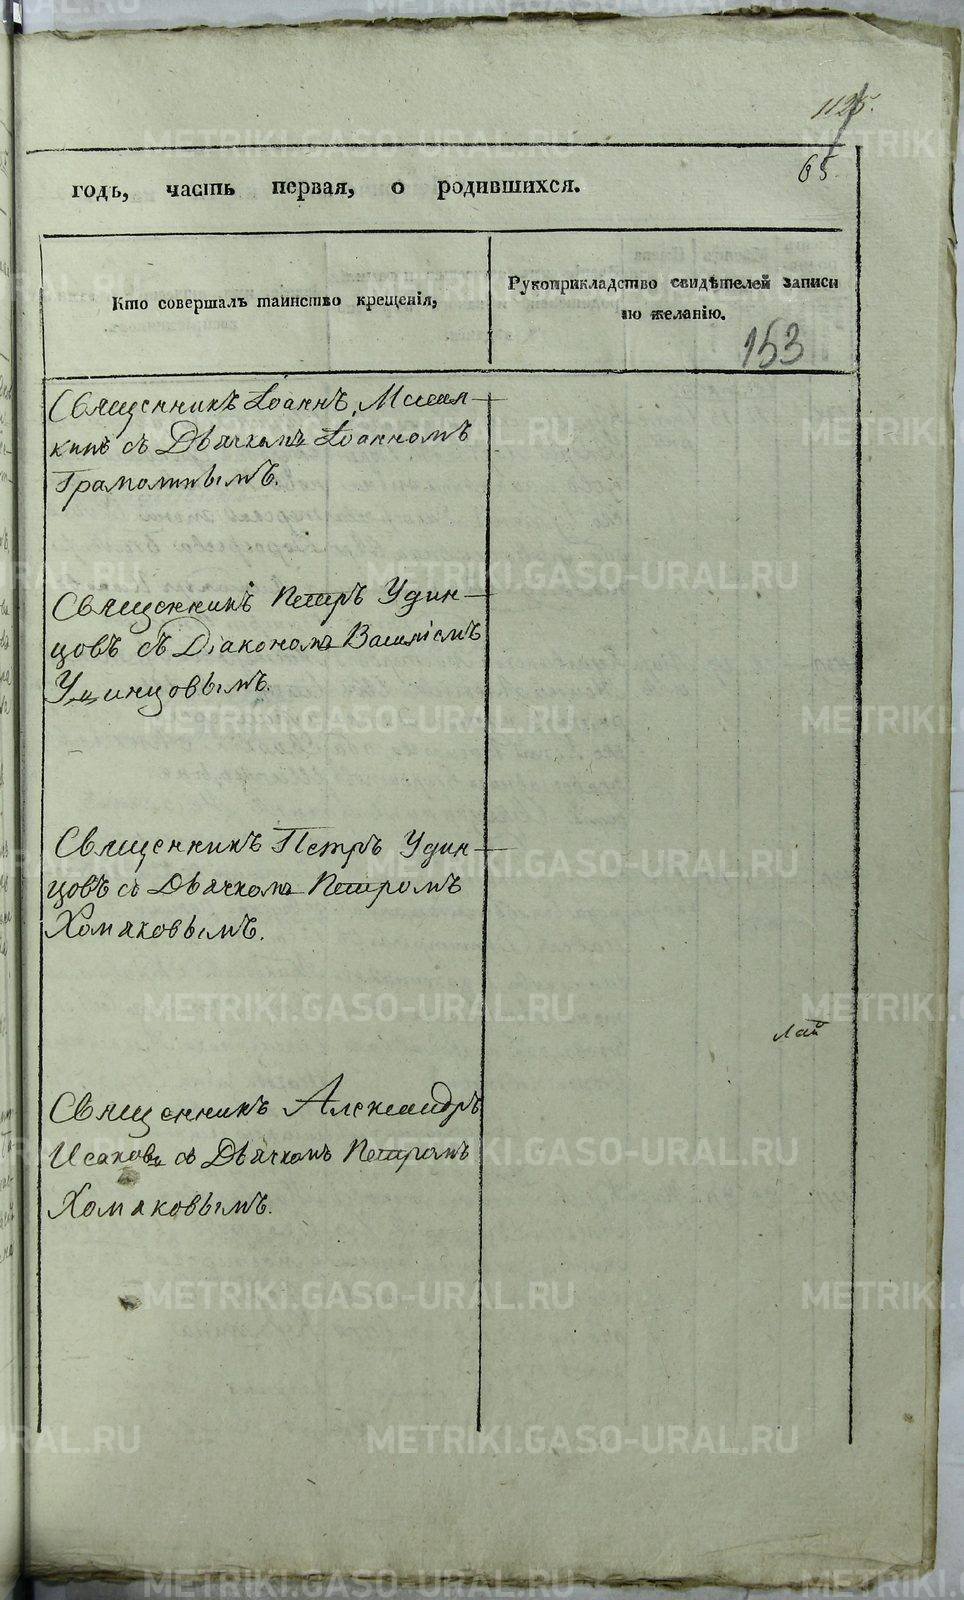 1125.
65.
годъ, часть первая, о родившихся.
Кто совершалъ таинство крещенія,
Рукоприкладство свидѣтелей записи
по желанію.
153
Священникъ Іоаннъ
съ Дьячкомъ Іоанномъ
Грамолинымъ.
Священникъ Петръ Удин-
цовъ съ Діакономъ Василіемъ
Удинцовымъ.
Священникъ Петръ Удин-
цовъ съ Дьячкомъ Петромъ
Хомяковымъ.
Священникъ Александръ
Исаковъ съ Дьячкомъ Петромъ
Хомяковымъ.
METRIKI.GASO-URAL.RU